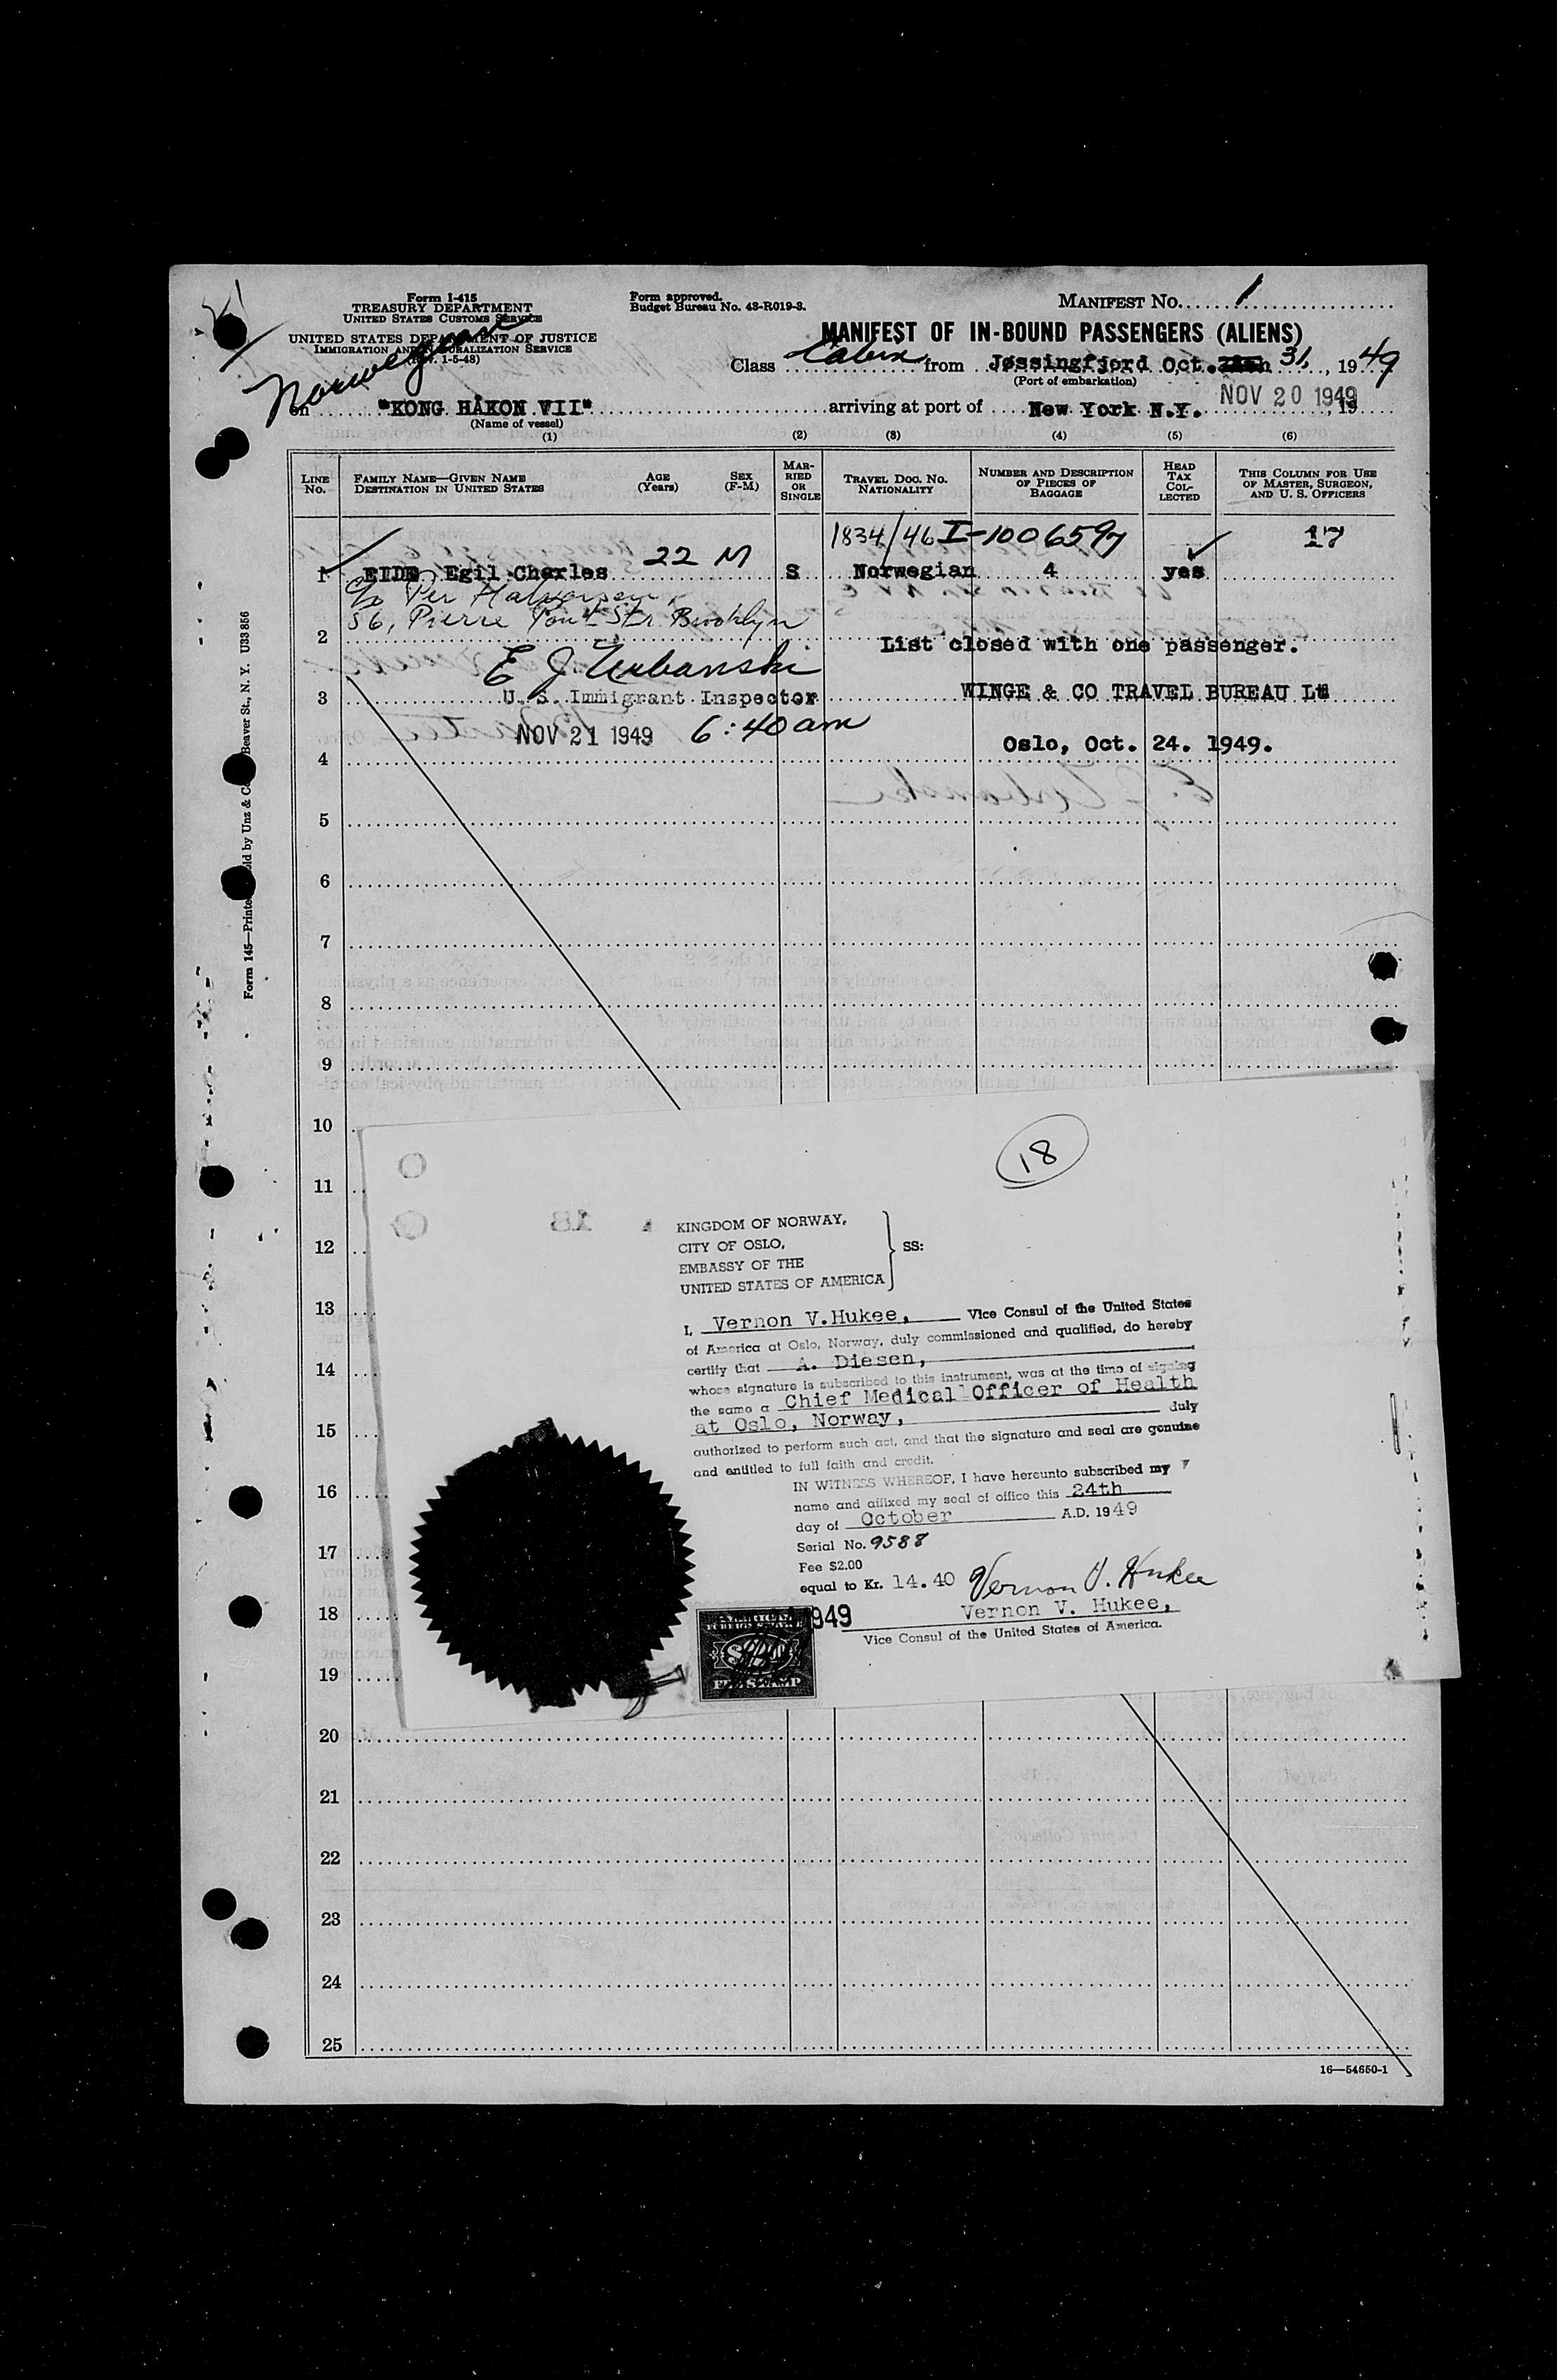 Form I-415
TREASURY DEPARTMENT
UNITED STATES CUSTOMS SERVICE
UNITED STATES DEPARTMENT OF JUSTICE
IMMIGRATION AND NATURALIZATION SERVICE
(Rev. 1-5-48)
Norwegian
Form approved.
Budget Bureau No. 43-R019-3.
MANIFEST NO. 1
MANIFEST OF IN-BOUND PASSENGERS (ALIENS)
Class Cabin from Jøssingfjord Oct. 31, 1949
(Port of embarkation)
on "KONG HÅKON VII" arriving at port of New York N.Y. NOV 20 1949, 19
(Name of vessel)
(1) (2) (3) (4) (5) (6)
LINE NO.
FAMILY NAME—GIVEN NAME
DESTINATION IN UNITED STATES
AGE (Years)
SEX (F-M)
MARRIED OR SINGLE
TRAVEL DOC. NO.
NATIONALITY
NUMBER AND DESCRIPTION OF PIECES OF BAGGAGE
HEAD TAX COLLECTED
THIS COLUMN FOR USE OF MASTER, SURGEON, AND U. S. OFFICERS
1834/46 I-1006597 17
1 EIDE Egil Charles 22 M S Norwegian 4 yes
c/o Per Halvorsen,
56, Pierre Pont Str. Brooklyn
2 List closed with one passenger.
E J Urbanski
3 U. S. Immigrant Inspector WINGE & CO TRAVEL BUREAU
NOV 21 1949 6:40 am
4 Oslo, Oct. 24. 1949.
5
6
7
8
9
10
11
12
13
14
15
16
17
18
19
20
21
22
23
24
25
16—54650-1
Form 145—Printed Sold by Unz & Co Beaver St., N. Y. U33856
18
KINGDOM OF NORWAY,
CITY OF OSLO,
EMBASSY OF THE
UNITED STATES OF AMERICA
SS:
I, Vernon V. Hukee, Vice Consul of the United States
of America at Oslo, Norway, duly commissioned and qualified, do hereby
certify that A. Diesen,
whose signature is subscribed to this instrument, was at the time of signing
the same a Chief Medical Officer of Health
at Oslo, Norway, duly
authorized to perform such act, and that the signature and seal are genuine
and entitled to full faith and credit.
IN WITNESS WHEREOF, I have hereunto subscribed my
name and affixed my seal of office this 24th
day of October A.D. 1949
Serial No. 9588
Fee $2.00
equal to Kr. 14.40 Vernon V. Hukee
Vernon V. Hukee,
Vice Consul of the United States of America.
949
FEE STAMP